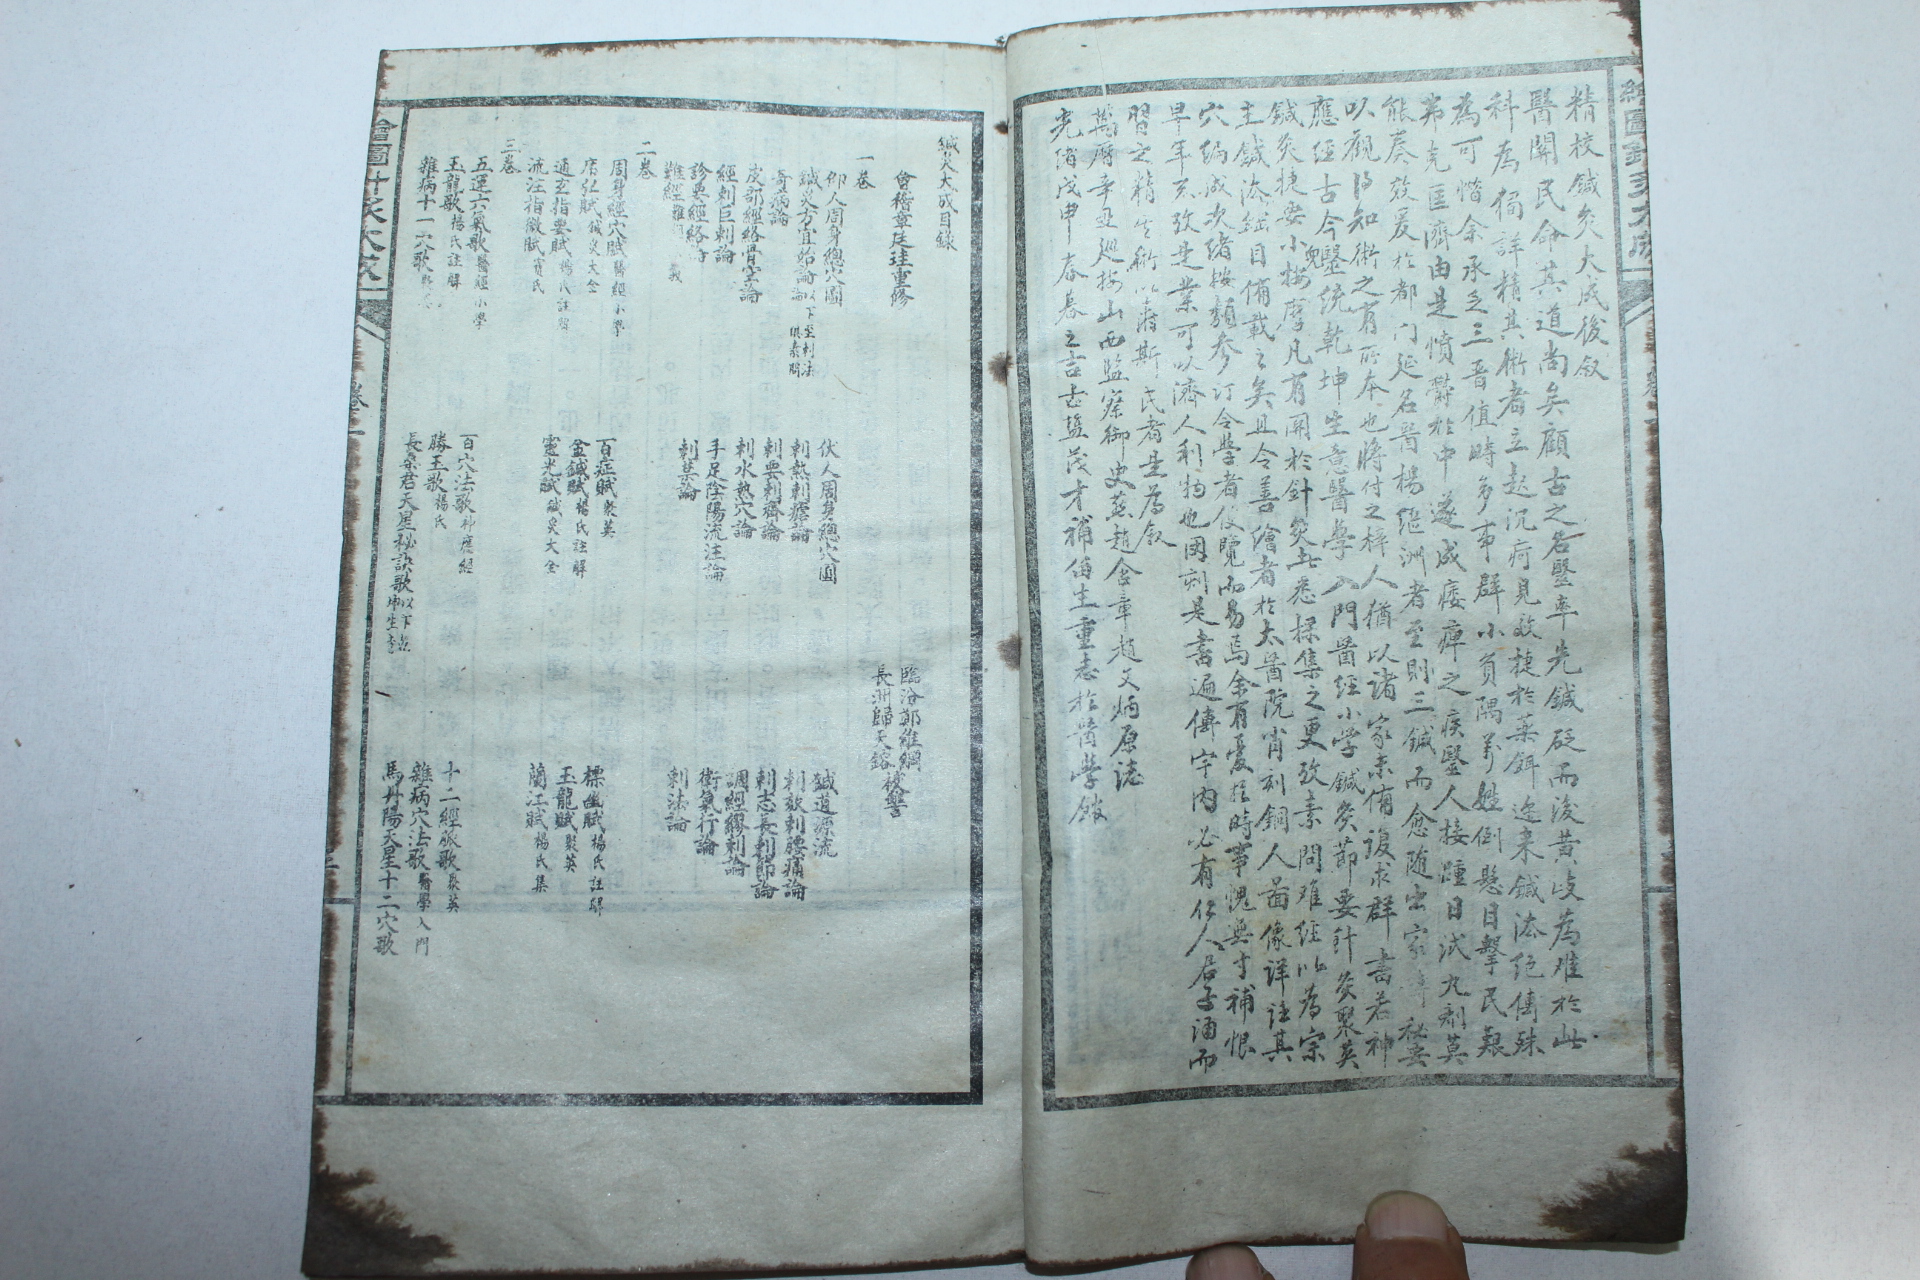 精校鍼灸大成後叙
醫關民命其道尚矣顧古之名毉率先鍼砭而後黄岐為难於此
科為獨詳精其術者立起沉疴見效捷於薬餌迩来鍼法絶傳殊
為可惜余承乏三晋值時多事群小負隅萬姓倒懸目擊民艱
弗克匡濟由是憤欝於中遂成痿痺之疾毉人接踵日試丸剤莫
能奏效爰於都门延名醫楊継洲者至則三鍼而愈随出家傳秘要
以觀乃知術之有所本也将付之梓人猶以诸家未備復求群書若神
應經古今毉統乾坤生意醫學入門醫經小学鍼灸節要針灸聚英
鍼灸捷要小按摩凡有関於針灸者悉採集之更攷素問难经以為宗
主鍼法綱目備載之矣且令善繪者於太醫院肖刻銅人啚像詳註其
穴編成次绪按類参订令學者便覽而易焉余有憂於時事愧無寸補恨
早年亥攷是業可以濟人利物也因刻是書遍傳宇内必有仁人君子誦而
習之精其術以寿斯民者是為叙
萬曆辛丑巡按山西監察御史燕趙含章趙文炳原誌
光绪戊申春暮之吉古盐茂才補留生重志於醫學館
鍼灸大成目錄
會稽章廷珪重修
臨汾鄭維綱
長洲歸天鎔 校讐
一卷
仰人周身總穴圖 伏人周身總穴圖 鍼道源流
鍼灸方宜始論 以下至刺法論俱素問 刺熱刺瘧論 刺欬刺腰痛論
奇病論 刺要刺齊論 刺志長刺節論
皮部經絡骨空論 刺水熱穴論 調經繆刺論
經刺巨刺論 手足陰陽流注論 衛氣行論
診要經絡論 刺禁論 刺法論
難經
二卷
周身經穴賦 醫經小學 百症賦 聚英 標幽賦 楊氏註解
席弘賦 鍼灸大全 金鍼賦 楊氏註解 玉龍賦 聚英
通玄指要賦 楊氏註解 靈光賦 鍼灸大全 蘭江賦 楊氏集
流注指微賦 竇氏
三卷
五運六氣歌 醫經小學 百穴法歌 神應經 十二經脈歌 聚英
玉龍歌 楊氏註解 勝玉歌 楊氏 雜病穴法歌 醫學入門
雜病十一穴歌 聚英 長桑君天星秘訣歌 馬丹陽天星十二穴歌